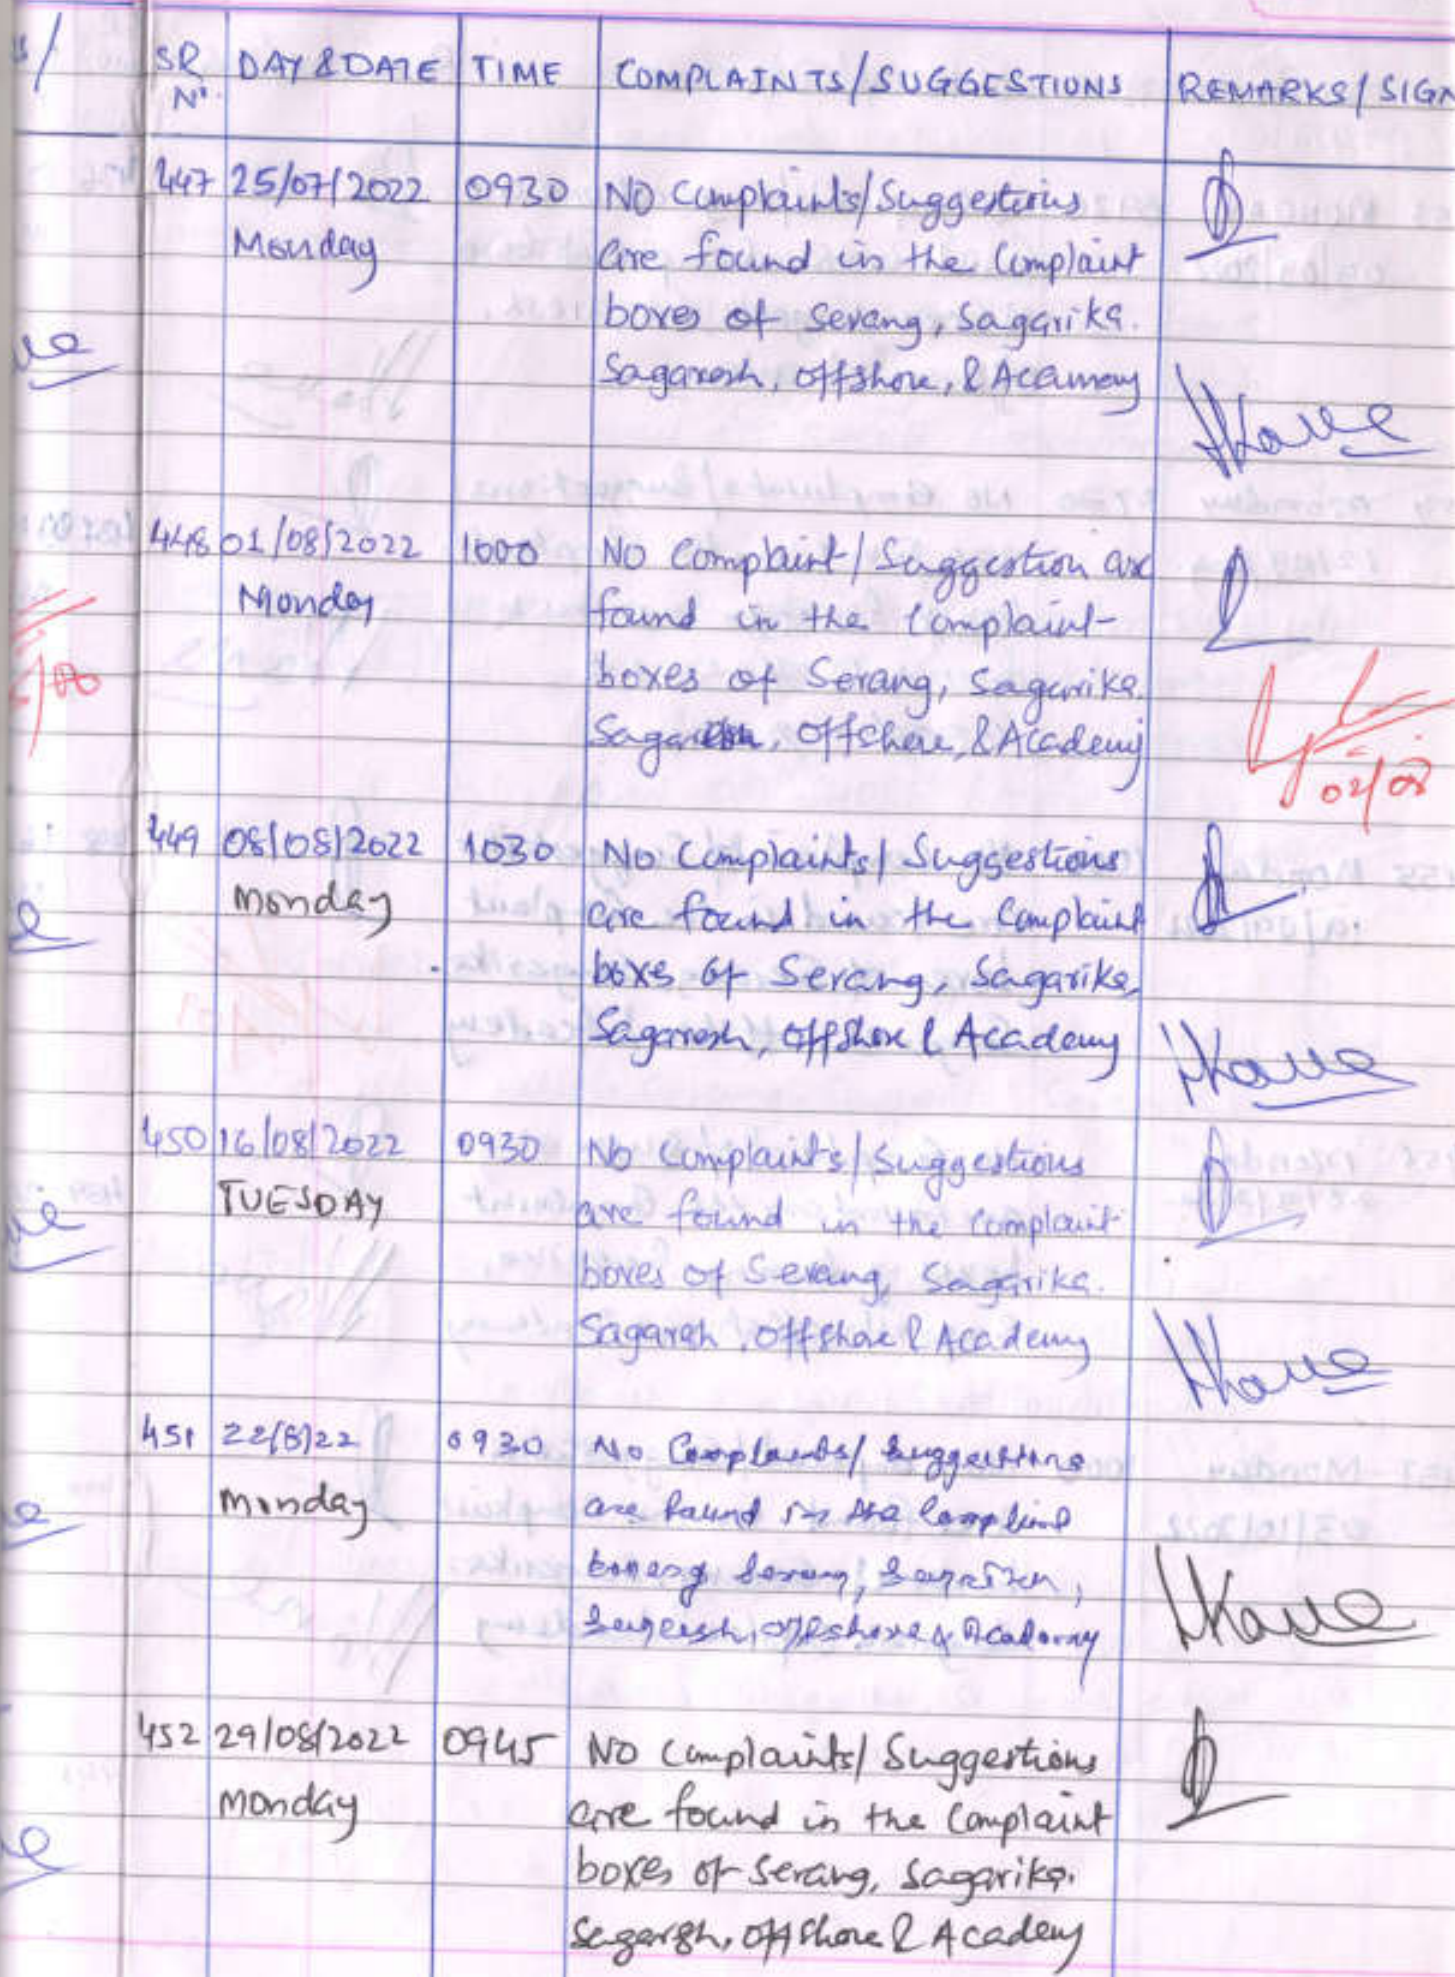 SR DAY & DATE TIME COMPLAINTS/SUGGESTIONS REMARKS/ SIGN
No.
447 25/07/2022 0930 NO Complaints/Suggestions
Monday are found in the Complaint
boxes of Serang, Sagarika.
Sagaresh, offshore, & Acamemy
HKaue
448 01/08/2022 1000 NO Complaint/Suggestion are
Monday found in the Complaint
boxes of Serang, Sagarika.
Sagaresh, offshore, & Academy
02/08
449 08/08/2022 1030 No Complaints/Suggestions
Monday are found in the Complaint
boxes of Serang, Sagarika,
Sagaresh, offshore & Academy
450 16/08/2022 0930 No Complaints/Suggestions
TUESDAY are found in the complaint
boxes of Serang, Sagarika.
Sagaresh, offshore & Academy
451 22/8/22 0930 No Complaints/Suggestions
Monday are found in the Complaint
boxes of Serang, Sagarika,
Sagaresh, offshore & Academy
452 29/08/2022 0945 NO Complaints/Suggestions
Monday are found in the Complaint
boxes of Serang, Sagarika.
Sagaresh, offshore & Academy